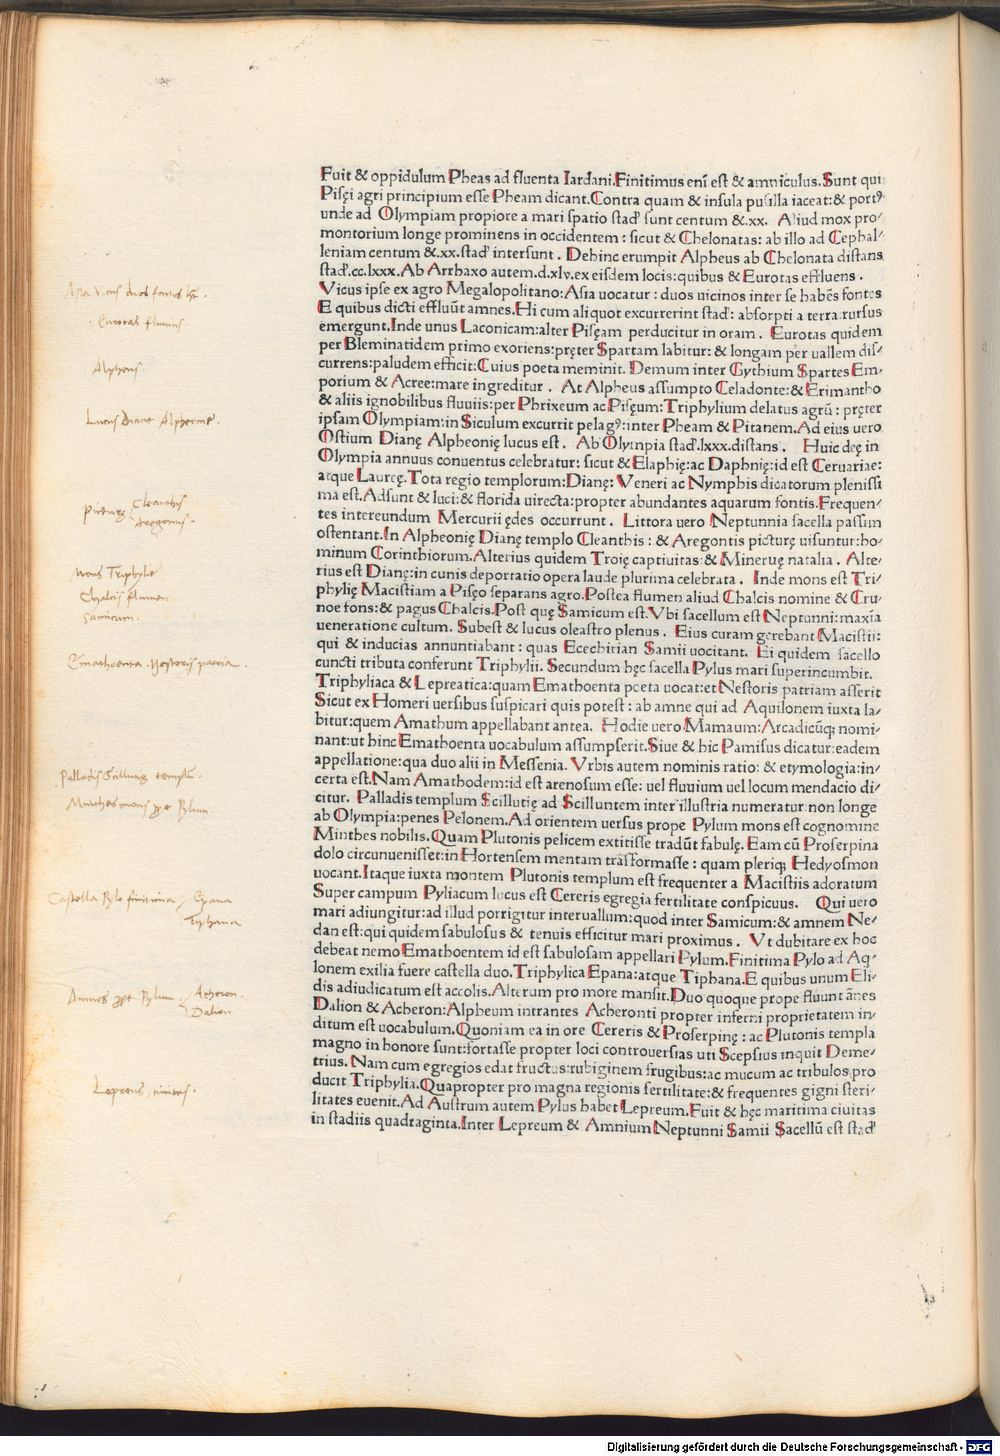 Fuit & oppidulum Pheas ad fluenta Iardani.Finitimus enī est & amniculus.Sunt qui
Pisęi agri principium esse Pheam dicant.Contra quam & insula pusilla iaceat:& portꝰ
unde ad Olympiam propiore a mari spatio stad' sunt centum &.xx. Aliud mox pro-
montorium longe prominens in occidentem : sicut & Chelonatas: ab illo ad Cephal-
leniam centum &.xx.stad' intersunt . Dehinc erumpit Alpheus ab Chelonata distans
stad'.cc.lxxx.Ab Arrhaxo autem.d.xlv.ex eisdem locis:quibus & Eurotas effluens .
Vicus ipse ex agro Megalopolitano:Asia uocatur : duos uicinos inter se habēs fontes
E quibus dicti effluūt amnes.Hi cum aliquot excurrerint stad': absorpti a terra:rursus
emergunt.Inde unus Laconicam:alter Pisęam perducitur in oram . Eurotas quidem
per Bleminatidem primo exoriens:pręter Spartam labitur: & longam per uallem dis-
currens:paludem efficit:Cuius poeta meminit. Demum inter Gythium Spartes Em-
porium & Acree:mare ingreditur . At Alpheus assumpto Celadonte:& Erimantho
& aliis ignobilibus fluuiis:per Phrixeum ac Pisęum:Triphylium delatus agrū : pręter
ipsam Olympiam:in Siculum excurrit pelagꝰ:inter Pheam & Pitanem.Ad eius uero
Ostium Dianę Alpheonię lucus est . Ab Olympia stad'.lxxx.distans . Huic deę in
Olympia annuus conuentus celebratur: sicut & Elaphię:ac Daphnię:id est Ceruariae:
atque Laurcę.Tota regio templorum:Dianę: Veneri ac Nymphis dicatorum plenissi
ma est.Adsunt & luci:& florida uirecta:propter abundantes aquarum fontis.Frequen-
tes intereundum Mercurii ędes occurrunt . Littora uero Neptunnia sacella passim
ostentant.In Alpheonię Dianę templo Cleanthis : & Aregontis picturę uisuntur:ho-
minum Corinthiorum.Alterius quidem Troię captiuitas:& Mineruę natalia . Alte-
rius est Dianę:in cunis deportatio opera laude plurima celebrata . Inde mons est Tri-
phylię Macistiam a Pisęo separans agro.Postea flumen aliud Chalcis nomine & Cru-
noe fons:& pagus Chalcis.Post quę Samicum est.Vbi sacellum est Neptunni:maxia
ueneratione cultum. Subest & lucus oleastro plenus . Eius curam gerebant Macistii:
qui & inducias annuntiabant : quas Ecechirian Samii uocitant. Ei quidem sacello
cuncti tributa conferunt Triphylii. Secundum hęc sacella Pylus mari superincumbit.
Triphyliaca & Lepreatica:quam Emathoenta pceta uocat:et Nestoris patriam asserit
Sicut ex Homeri uersibus suspicari quis potest : ab amne qui ad Aquilonem iuxta la-
bitur:quem Amathum appellabant antea. Hodie uero Mamaum:Arcadicūq; nomi-
nant:ut hinc Emathoenta uocabulum assumpserit.Siue & hic Pamisus dicatur:eadem
appellatione:qua duo alii in Messenia. Vrbis autem nominis ratio: & etymologia:in-
certa est.Nam Amathodem:id est arenosum esse: uel fluuium uel locum mendacio di-
citur. Palladis templum Scillutię ad Scilluntem inter illustria numeratur non longe
ab Olympia:penes Pelonem.Ad orientem uersus prope Pylum mons est cognomine
Minthes nobilis.Quam Plutonis pelicem extitisse tradūt fabulę. Eam cū Proserpina
dolo circunuenisset:in Hortensem mentam trāsformasse : quam pleriq; Hedyosmon
uocant.Itaque iuxta montem Plutonis templum est frequenter a Macistiis adoratum
Super campum Pyliacum lucus est Cereris egregia fertilitate conspicuus. Qui uero
mari adiungitur:ad illud porrigitur interuallum:quod inter Samicum:& amnem Ne-
dan est:qui quidem sabulosus & tenuis efficitur mari proximus . Vt dubitare ex hoc
debeat nemo Emathoentem id est sabulosam appellari Pylum.Finitima Pylo ad Aq-
lonem exilia fuere castella duo.Triphylica Epana:atque Tiphana.E quibus unum Eli-
dis adiudicatum est accolis.Alterum pro more mansit.Duo quoque prope fluunt ānes
Dalion & Acheron:Alpheum intrantes Acheronti propter inferni proprietatem in-
ditum est uocabulum.Quoniam ea in ore Cereris & Proserpinę : ac Plutonis templa
magno in honore sunt:fortasse propter loci controuersias uti Scepsius inquit Deme-
trius. Nam cum egregios edat fructus:rubiginem frugibus:ac mucum ac tribulos pro
ducit Triphylia.Quapropter pro magna regionis fertilitate:& frequentes gigni steri-
litates euenit.Ad Austrum autem Pylus habet Lepreum.Fuit & hęc maritima ciuitas
in stadiis quadraginta.Inter Lepreum & Amnium Neptunni Samii Sacellū est stad'
Asia Vicus duos fontes
Eurotas fluuius.
Alpheus.
Lucus Diane Alpheonię.
Picturę Cleanthis
Aregontis.
Mons Triphylię
Chalcis flumen
Samicum.
Emathoenta. Nestoris patria.
Palladis Scillutię templū.
Minthes mons ꝓpe Pylum
Castella Pylo finitima Epana
Tiphana
Amnes ꝓpe Pylum. Acheron.
Dalion
Lepreus, ciuitas.
Digitalisierung gefördert durch die Deutsche Forschungsgemeinschaft - DFG